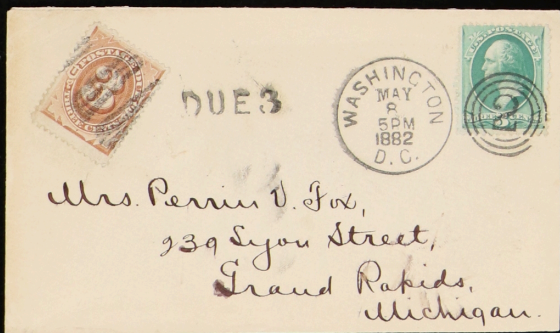 POSTAGE
3
DUE 3
WASHINGTON
MAY
8
5PM
1882
D.C.
U.S. POSTAGE
2
Mrs. Perrin V. Fox,
239 Lyon Street,
Grand Rapids,
Michigan.